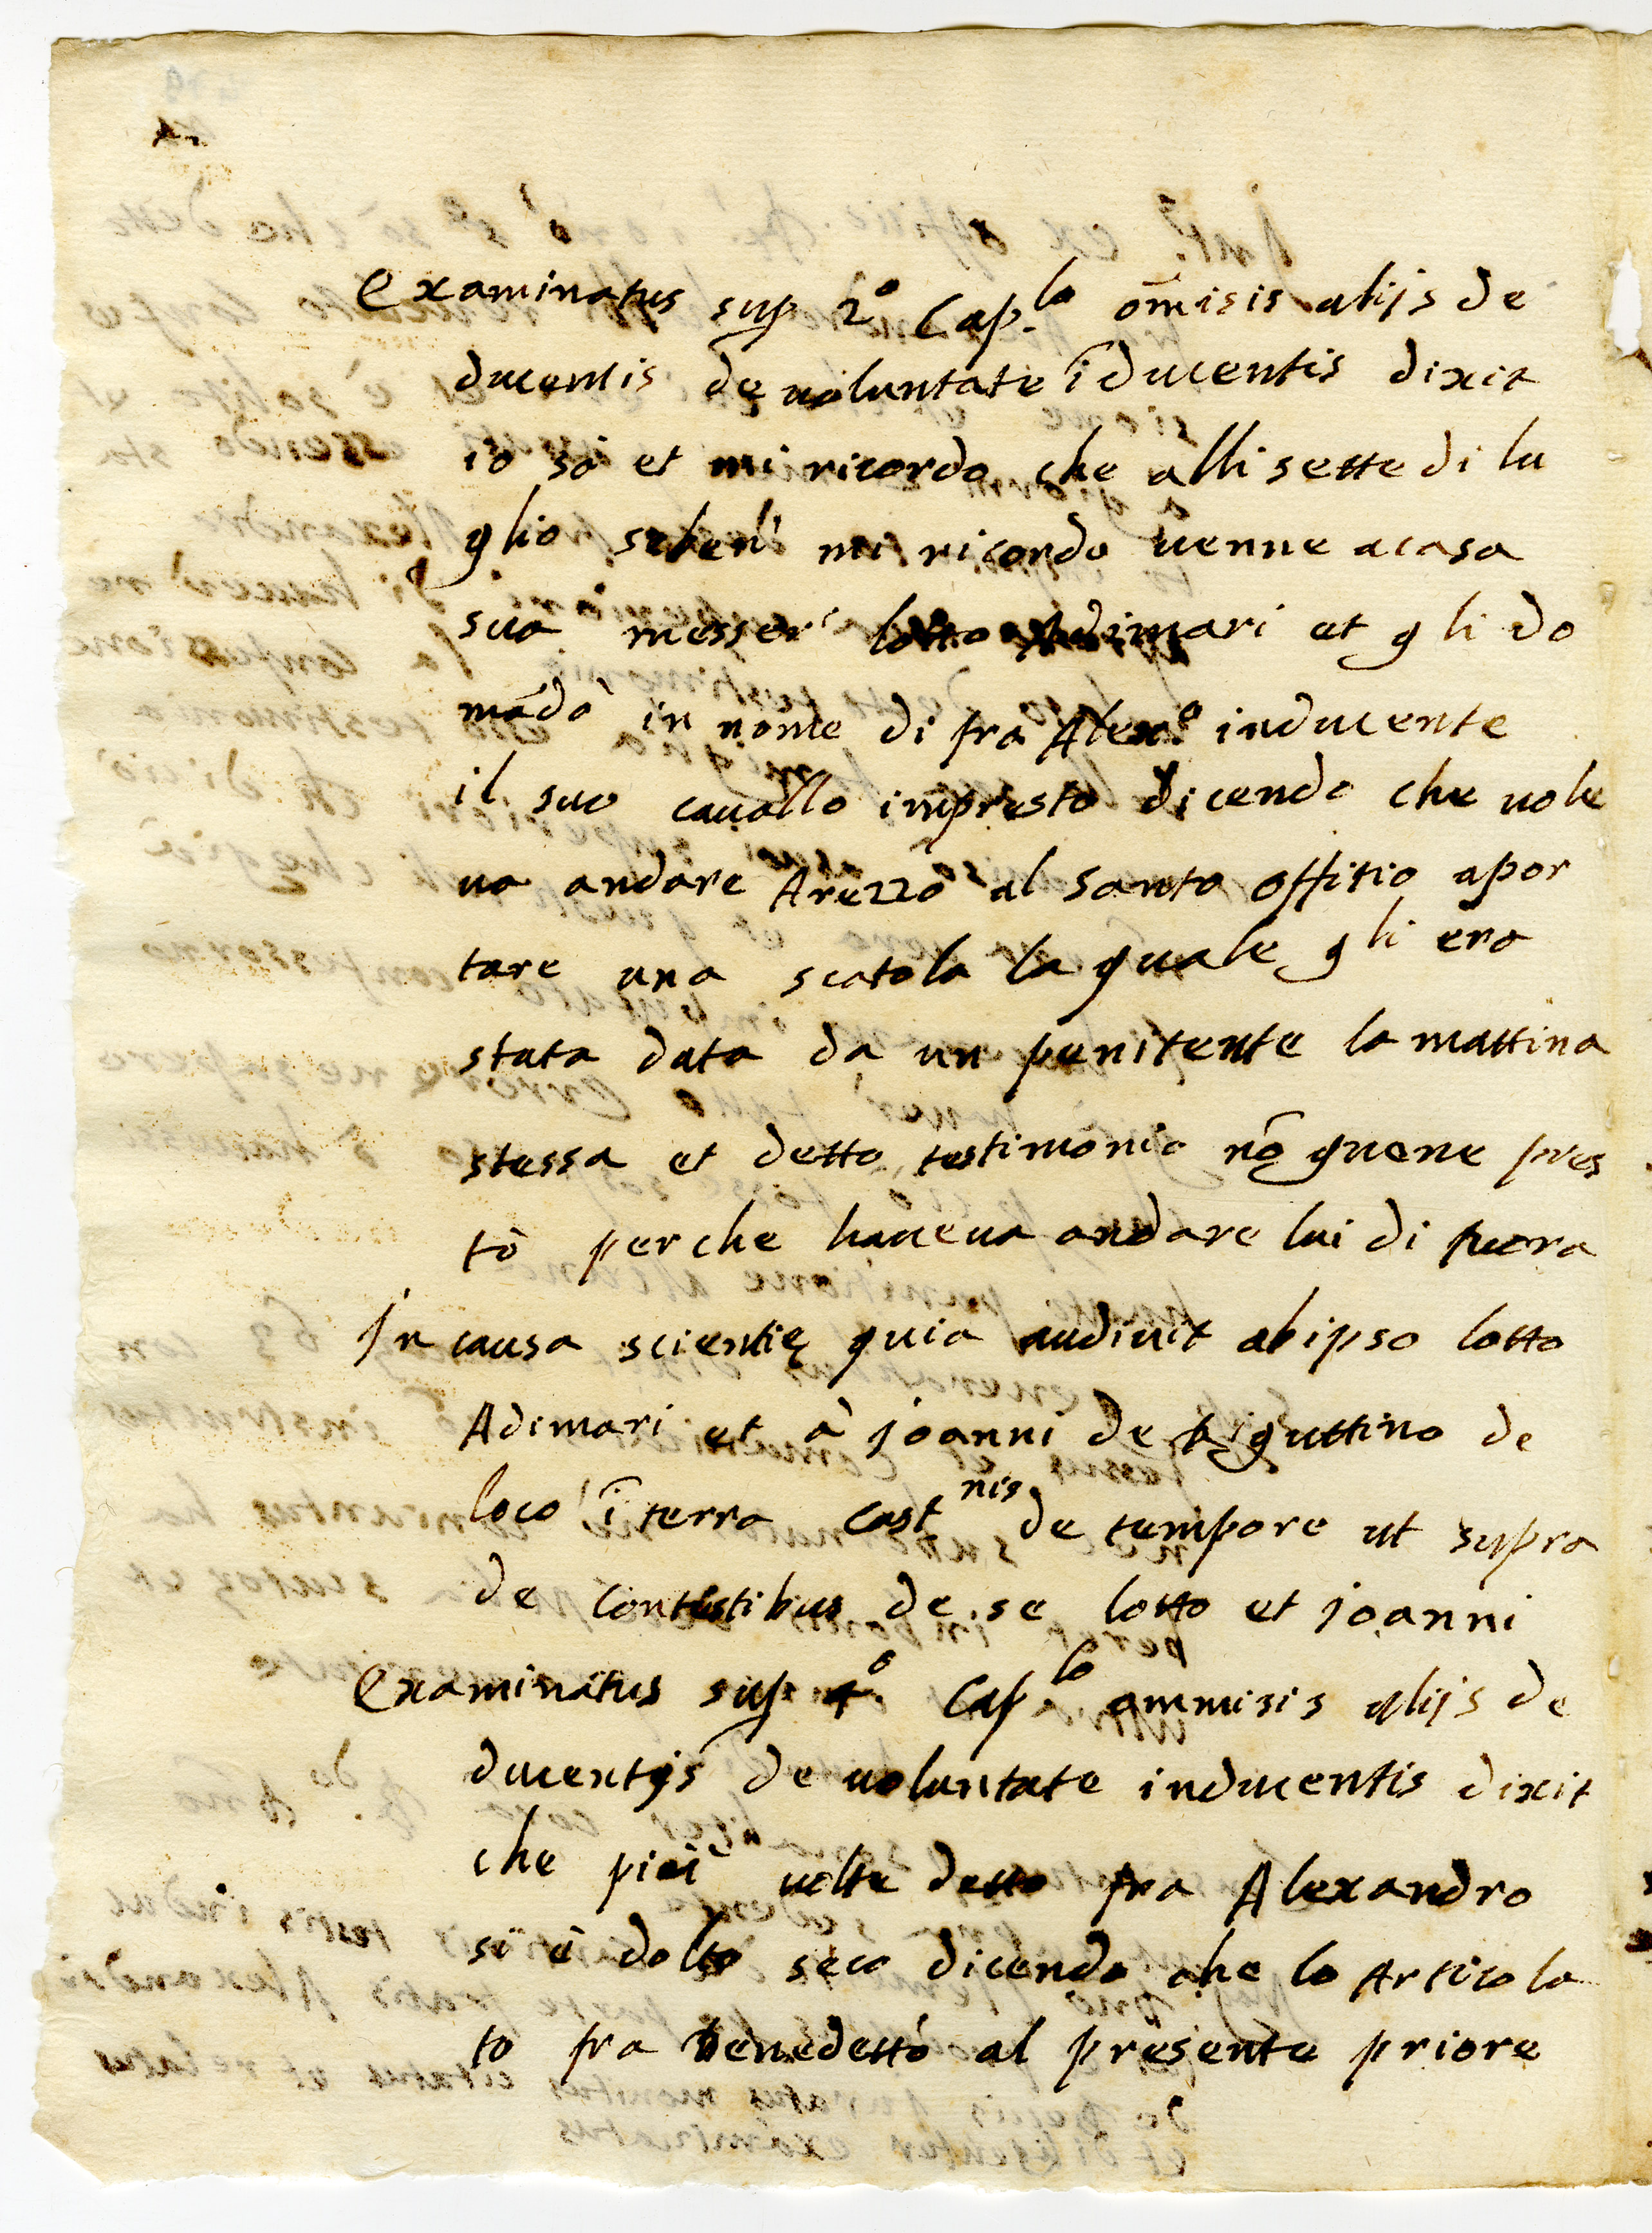 Examinatus sup 2º Cap.lo om̃isis alijs de
ducentis de uoluntate ĩducentis dixit
io sò et mi ricordo che alli sette di lu
glio seben' mi ricordo uenne acasa
sua messer' lotto Adimari et gli do
mãdò in nome di fra Alexº inducente
il suo cauallo impresto dicendo che uole
ua andare Arezzo al santo offitio apor
tare una scatola la quale gli era
stata data da un penitente la mattina
stessa et detto testimonio nõ guene pres
tò perche haueua andare lui di fuora
In causa scientię quia audiuit ab ipso lotto
Adimari et à joanni de riguttino de
loco ĩ terra Castnis de tempore ut supra
de contestibus de se lotto et joanni
Examinatus sup 4º Cap.lo ommisis alijs de
ducentijs de uoluntate inducentis dixit
che piu uolte detto fra Alexandro
si è dolto seco dicendo che lo Articola
to fra benedetto al presente priore